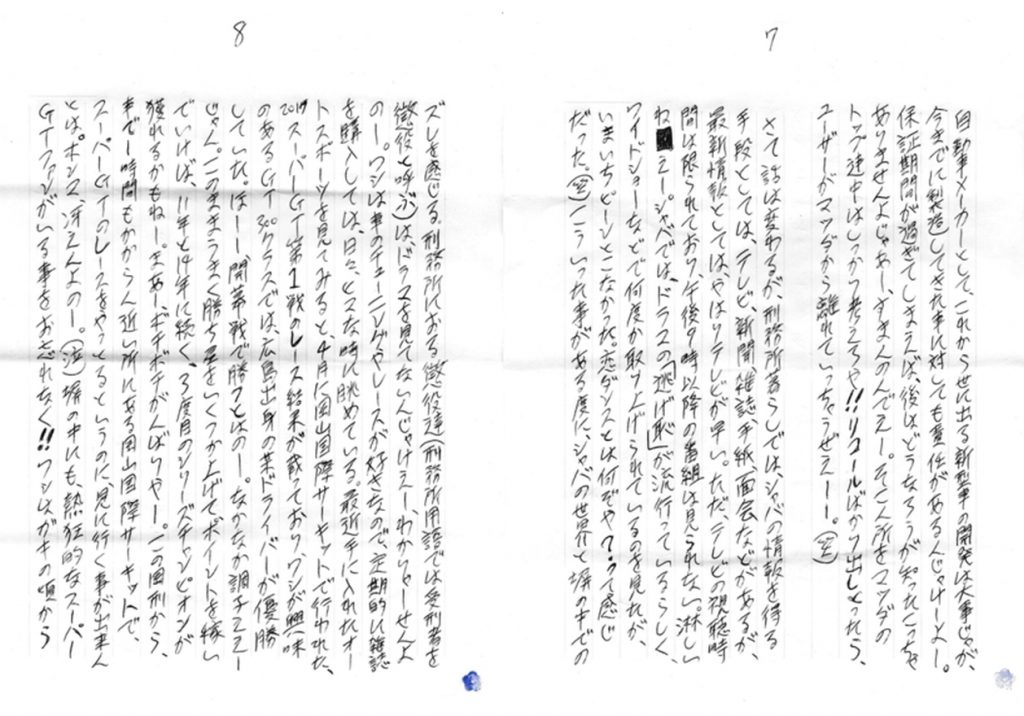 7
自動車メーカーとして、これから世に出る新型車の開発は大事じゃが、
今までに製造してきた車に対しても責任があるんじゃけーとよー。
保証期間が過ぎてしまえば、後はどうなろうが知ったこっちゃ
ありませんよじゃあー、すまんのんでえー。そこん所をマツダの
トップ連中はしっかり考えろや!!リコールばかり出しとったら、
ユーザーがマツダから離れていっちゃうぜえーー。(笑)
さて話は変わるが、刑務所暮らしではシャバの情報を得る
手段としては、テレビ、新聞、雑誌、手紙、面会などがあるが、
最新情報としては、やはりテレビが早い。ただ、テレビの視聴時
間は限られており午後9時以降の番組は見られない。淋しい
ねえー。シャバでは、ドラマの「逃げ恥」が流行っているらしく、
ワイドショーなどで何度か取り上げられているのを見たが、
いまいちピーンとこなかった。恋ダンスとは何ぞや?って感じ
だった。(笑)こういった事がある度に、シャバの世界と塀の中での
8
ズレを感じる。刑務所におる懲役達(刑務所用語では受刑者を
懲役と呼ぶ)は、ドラマを見てないんじゃけえー、わからりゃーせんよ
のー。ワシは車のチューニングやレースが好きなので、定期的に雑誌
を購入しては、日々、ヒマな時に眺めている。最近手に入れたオー
トスポーツを見てみると、4月に岡山国際サーキットで行われた、
2017スーパーGT第1戦のレース結果が載っており、ワシが興味
のあるGT300クラスでは、広島出身の某ドライバーが優勝
していた。ほーー開幕戦で勝つとはのー。なかなか調子ええー
じゃん。このままうまく勝ち星をいくつか上げてポイントを稼い
でいけば、11年と14年に続く、3度目のシリーズチャンピオンが
獲れるかもねー。まあー、ボチボチがんばりやー。この岡刑から、
車で一時間もかからん近い所にある岡山国際サーキットで、
スーパーGTのレースをやっとるというのに見に行く事が出来ん
とは。ホンマ、冴えんよのー。(泣)塀の中にも、熱狂的なスーパー
GTファンがいる事をお忘れなく!!ワシはガキの頃から